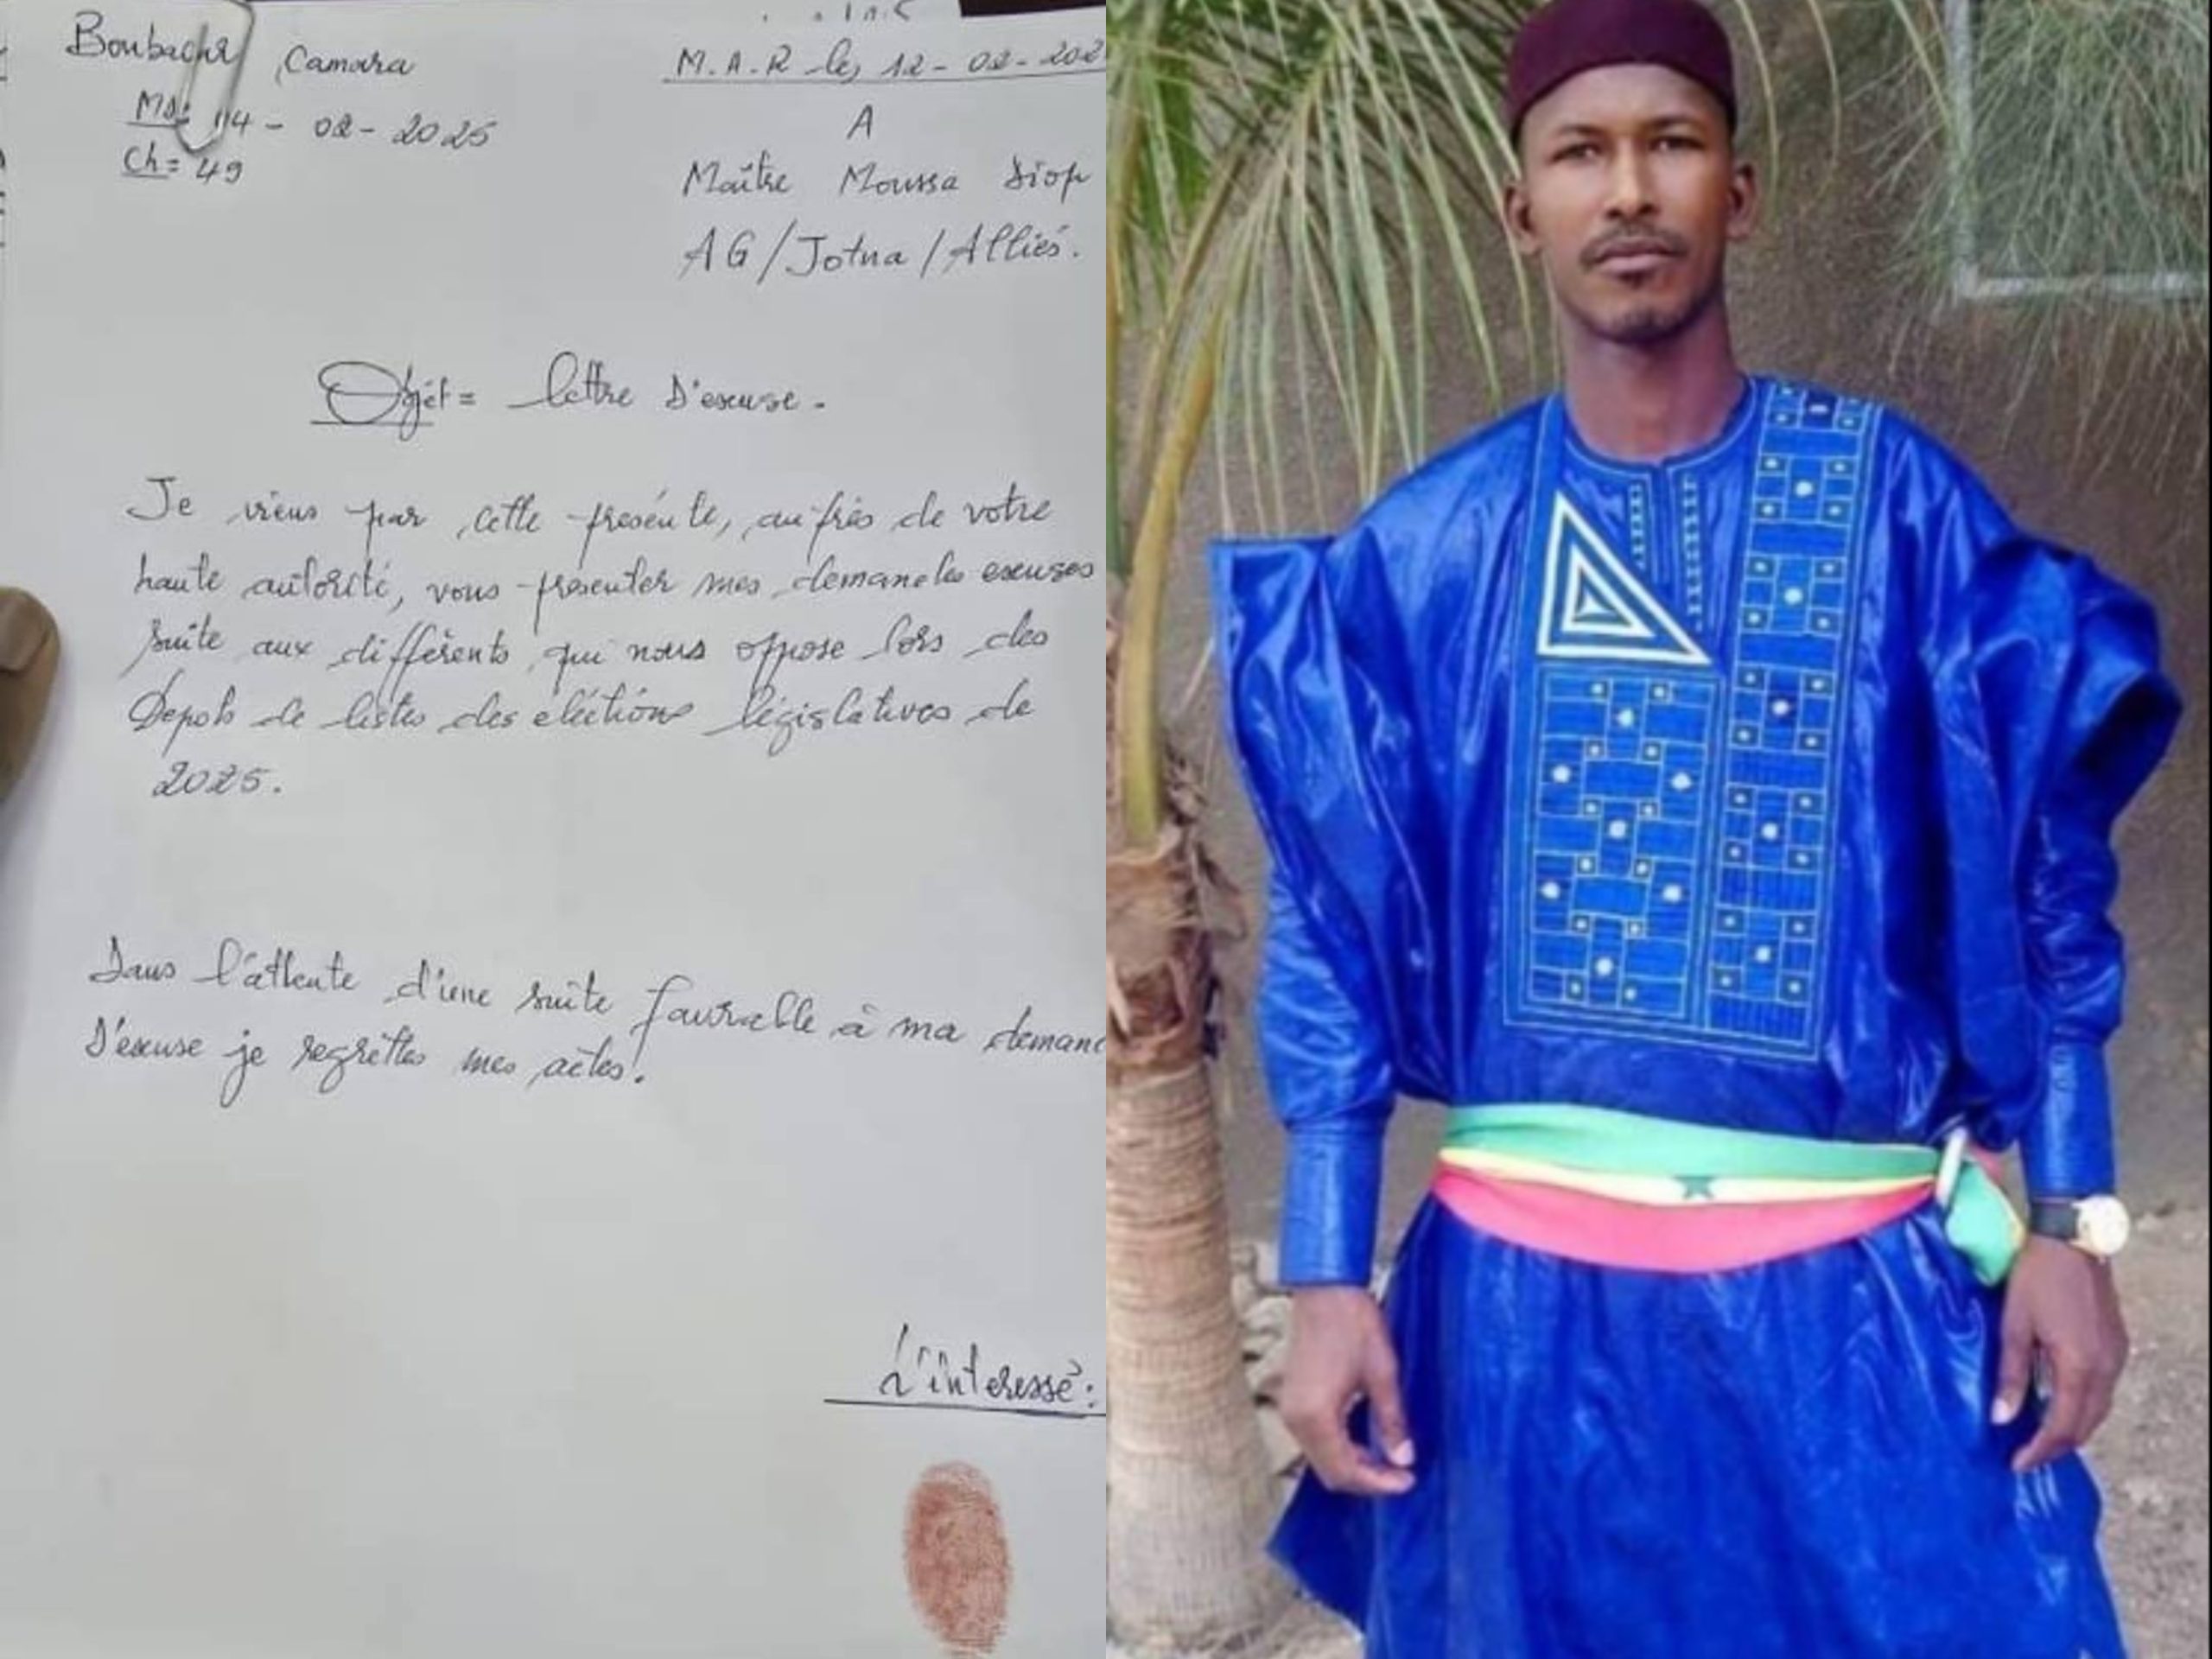 Boubacar Camara
Md: 14 - 02 - 2025
Ch = 49
M.A.R le, 12 - 02 - 202
A
Maître Moussa Diop
AG/Jotna/Alliés.
Objét = lettre D'excuse.
Je viens par cette présente, auprès de votre
haute autorité, vous présenter mes demandes excuses
suite aux différents qui nous oppose lors des
Depots de listes des élections législatives de
2025.
Dans l'attente d'une suite favorable à ma deman
D'excuse je regrèttes mes actes.
L'interessé: